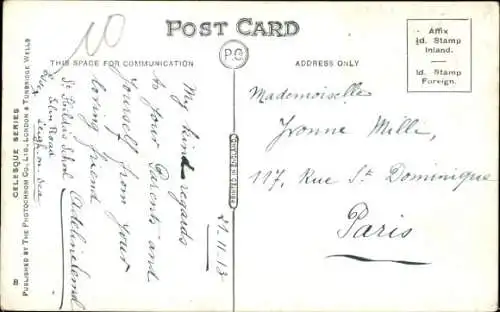 POST CARD
P.C.
THIS SPACE FOR COMMUNICATION
ADDRESS ONLY
Affix
½d. Stamp
Inland.
Id. Stamp
Foreign.
10
My kind regards
to your Parents and
Yourself from your
loving friend
Adeline
St Hilda's School
Elm Road
Leigh-on-Sea
21.11.13
Mademoiselle
Yvonne Milli,
117, Rue St Dominique
Paris
CELESQUE SERIES
PUBLISHED BY THE PHOTOCHROM CO., LTD., LONDON & TUNBRIDGE WELLS